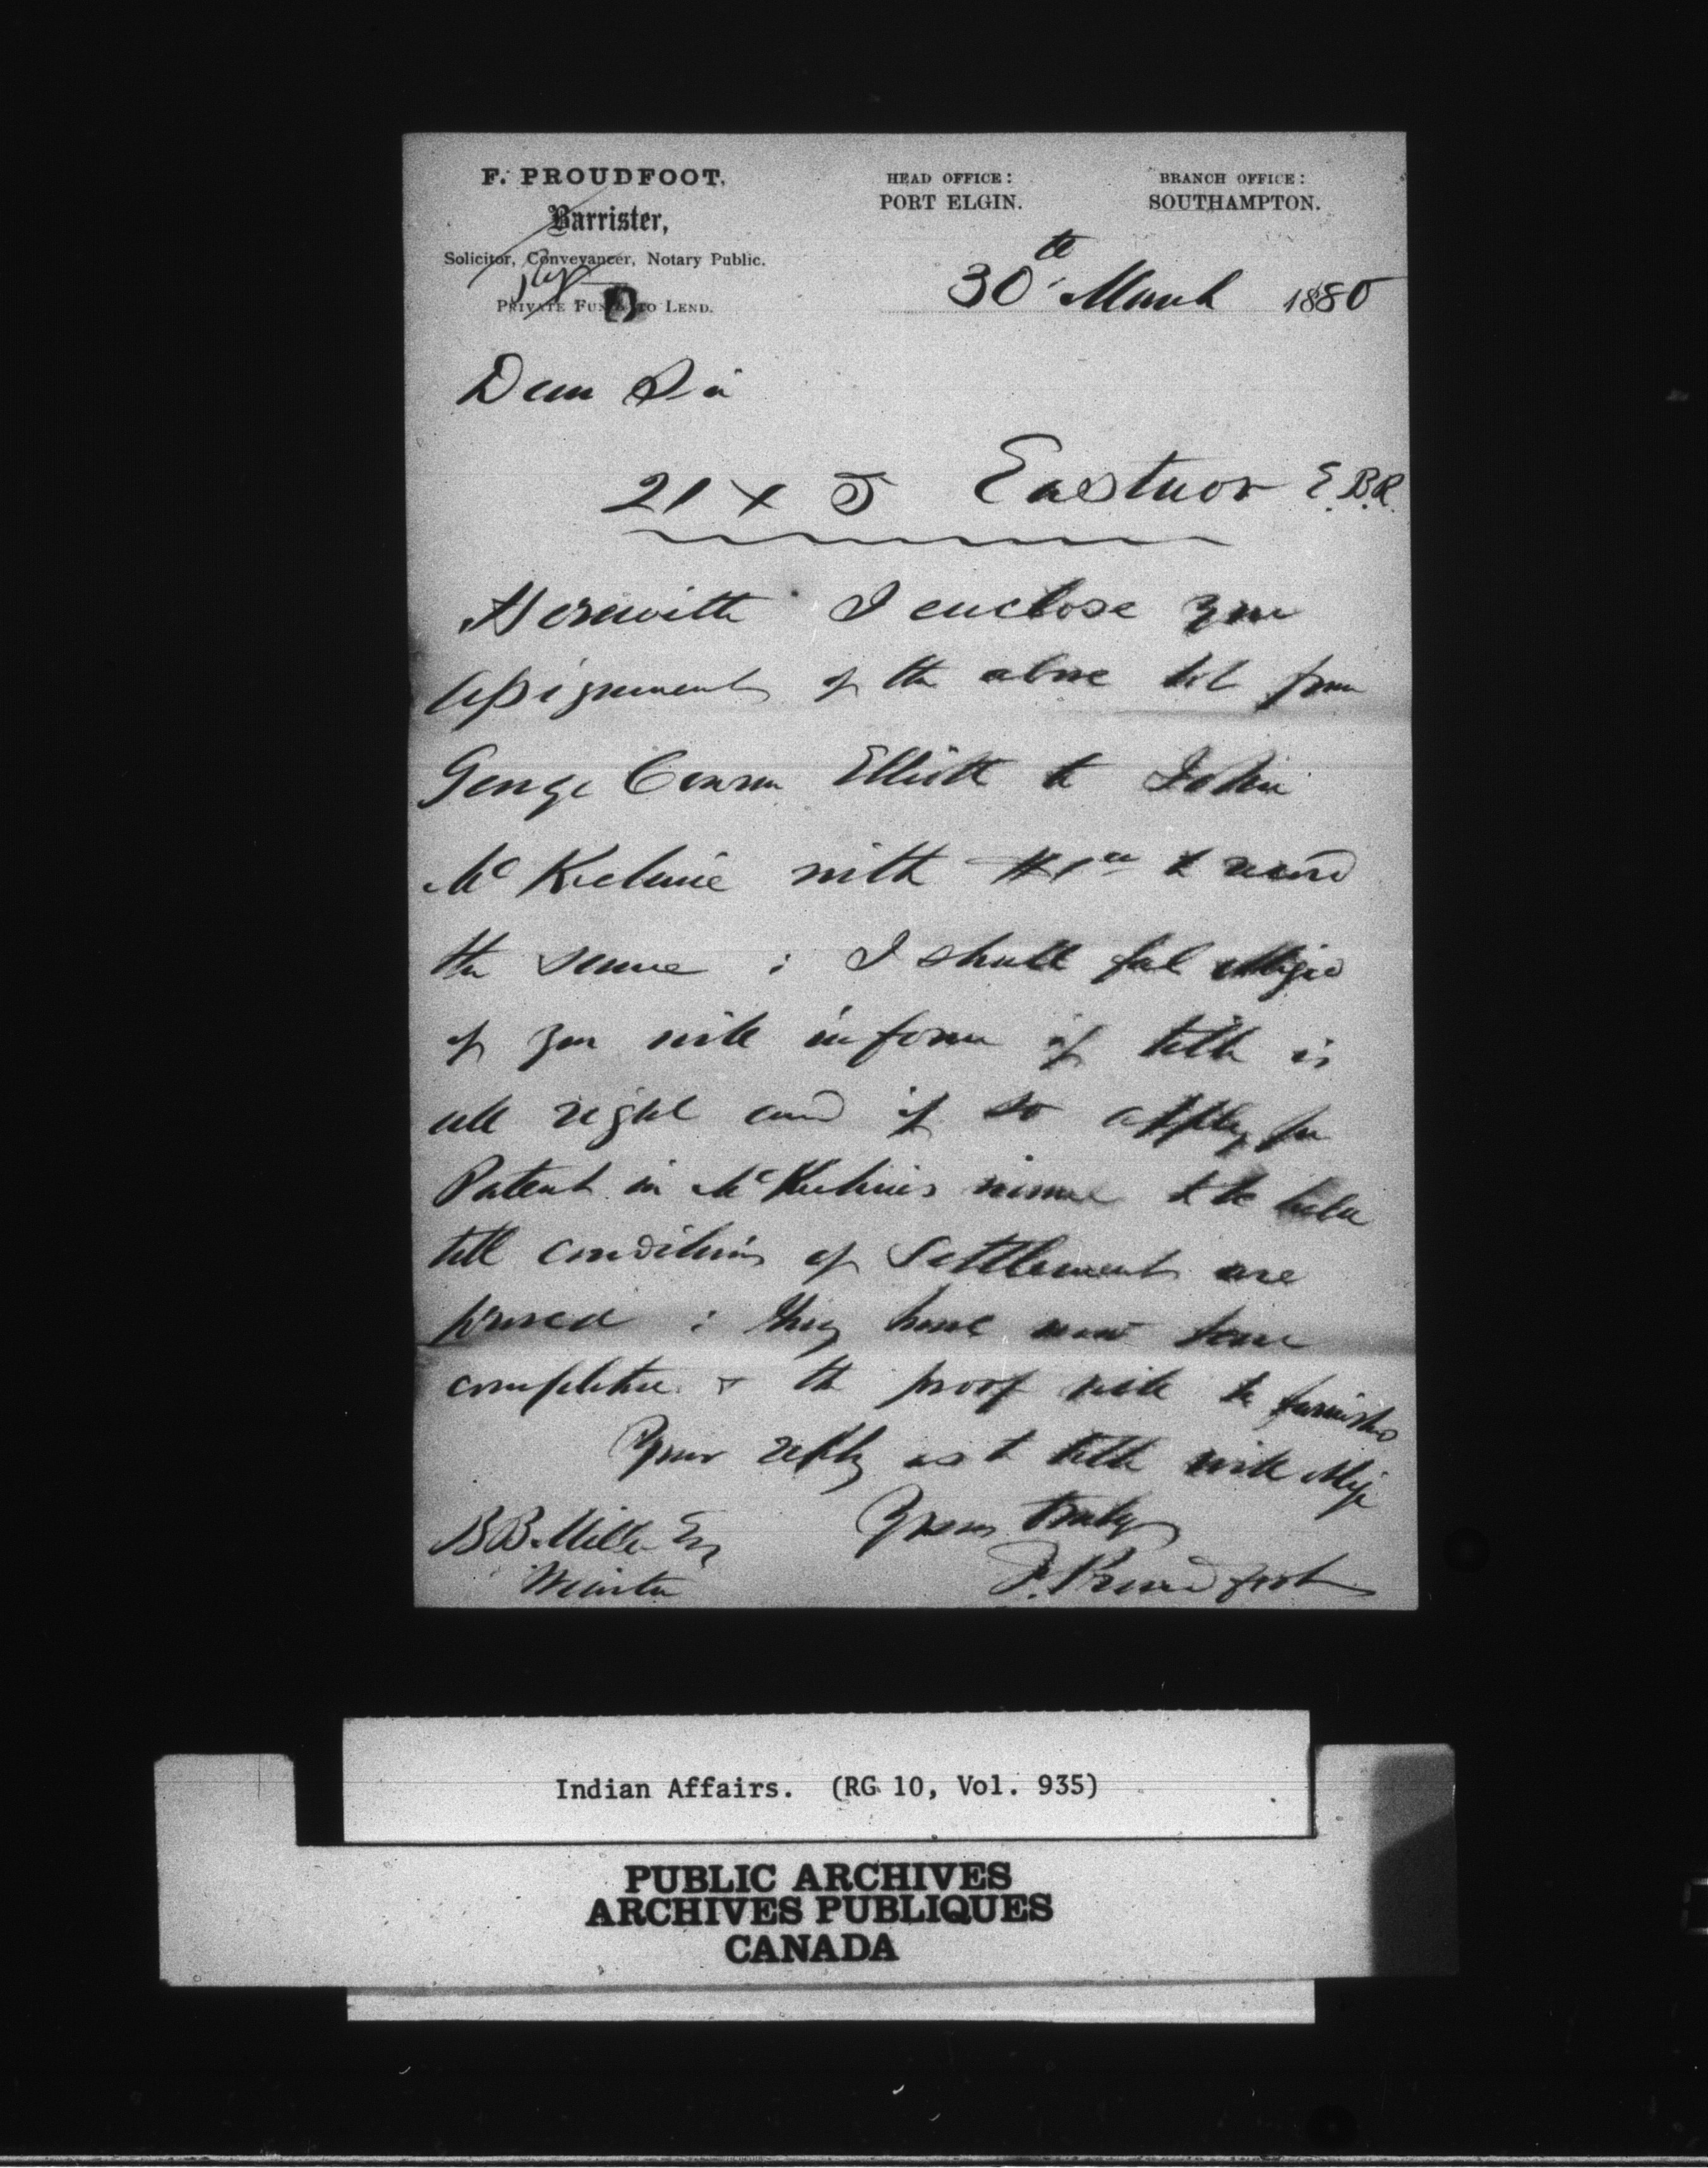 F. PROUDFOOT,
Barrister,
Solicitor, Conveyancer, Notary Public.
PRIVATE FUNDS TO LEND.
HEAD OFFICE:
PORT ELGIN.
BRANCH OFFICE:
SOUTHAMPTON.
30th March 1880
Dear Sir
21 x 5 Eastnor E.B.R.
Herewith I enclose you
assignment of the above lot from
George Elliott to John
Mc with $1 to record
the same ; I shall feel obliged
if you will inform if title is
all right and if so apply for
Patent in name to be
till conditions of Settlement are
proved ; they have now been
completed & the proof will be furnished
Your reply as to title will oblige
Yours truly
F. Proudfoot
B B. Miller Esq
Wiarton
Indian Affairs. (RG 10, Vol. 935)
PUBLIC ARCHIVES
ARCHIVES PUBLIQUES
CANADA